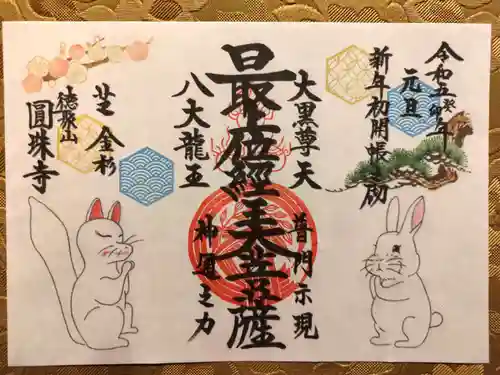 令和五癸卯年
元旦
新年初開帳之砌
大黒尊天
普門示現
最上位經王大菩薩
八大龍王
神通之力
芝金杉
徳聚山
圓珠寺